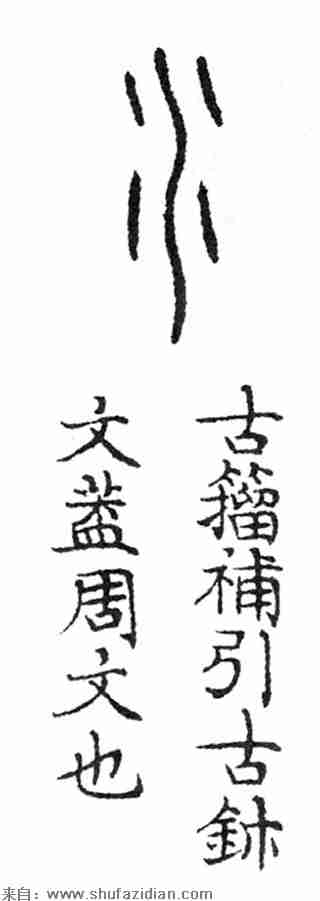 水
古籀補引古鉩
文蓋周文也
来自：www.shufazidian.com